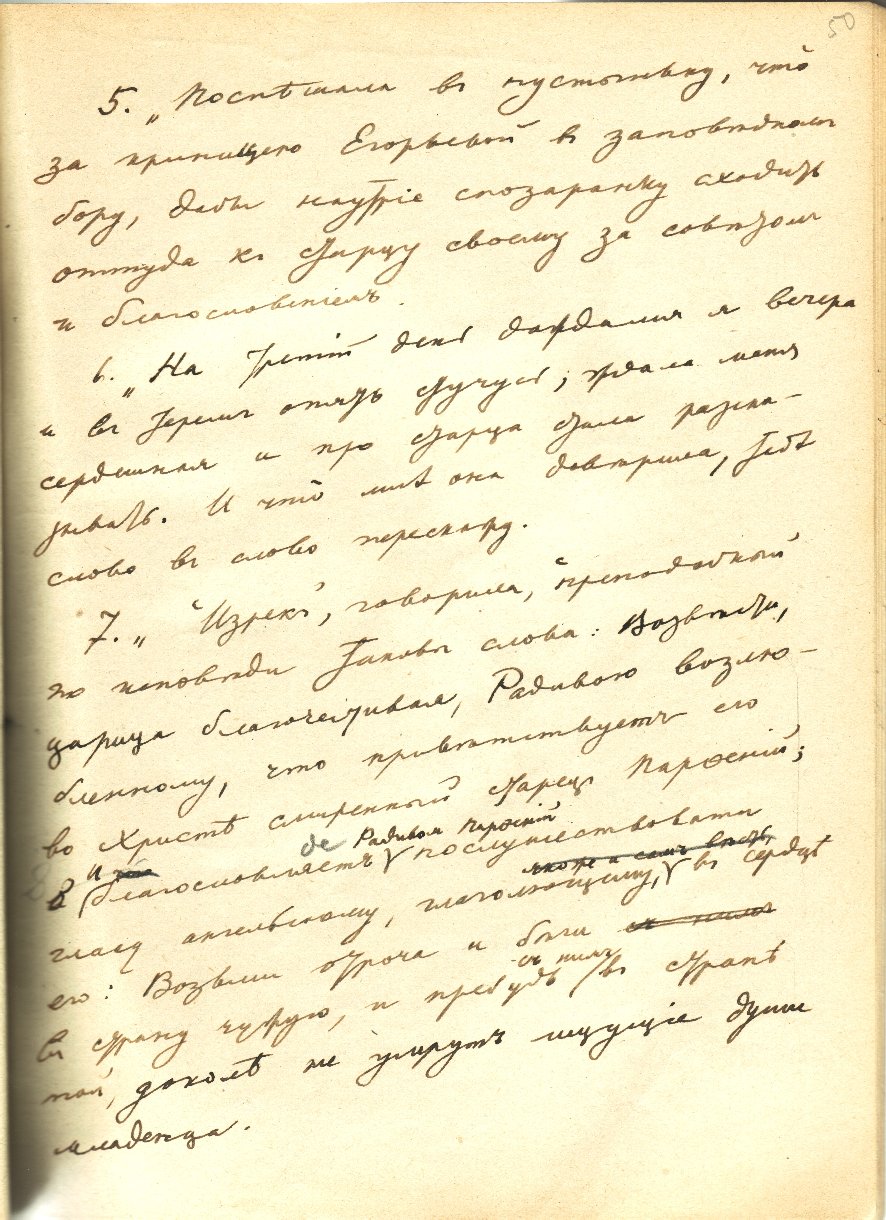 50
5. „Поспѣшала въ пустыньку, что
за криницею Егорьевой въ заповѣдномъ
бору, дабы наутріе спозаранку сходить
оттуда къ старцу своему за совѣтомъ
и благословеніемъ.
6. „На третій день дождался я вечера
и въ теремъ опять стучусь; ждала меня
сердешная и про старца стала разска-
зывать. И что мнѣ она довѣрила, тебѣ
слово въ слово перескажу.
7. „ "Изрекъ", говорила, "преподобный
по исповѣди таковы слова: Возвѣсти,
царица благочестивая, Радивою возлю-
бленному, что привѣтствуетъ его
во Христѣ смиренный старец Парѳеній;
и
de Радивою Парѳеній
благословляетъ послушествовати
якоже и самъ вѣсть,
гласу ангельскому, глаголющему, въ сердцѣ
его: Возьми отроча и бѣги съ нимъ
въ страну чужую, и пребудь съ нимъ въ странѣ
той, доколѣ не умрутъ ищущіе души
младенца.